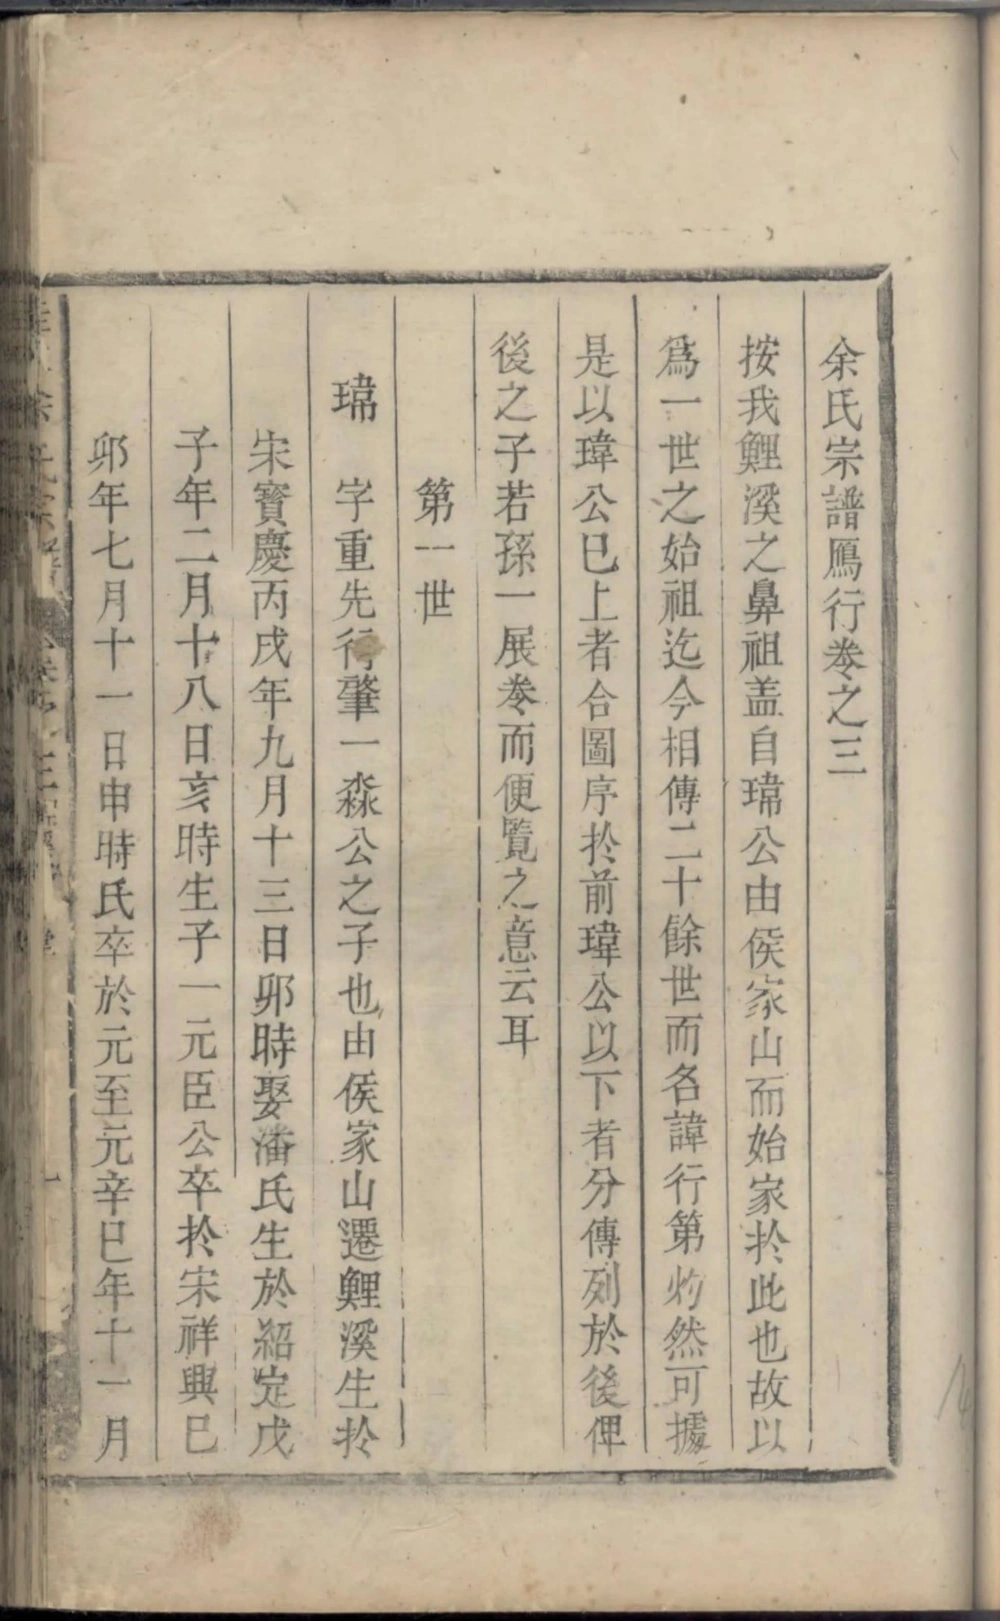 余氏宗譜鴈行卷之三
按我鯉溪之鼻祖盖自瑋公由侯家山而始家扵此也故以
爲一世之始祖迄今相傳二十餘世而名諱行第灼然可據
是以瑋公巳上者合圖序扵前瑋公以下者分傳列於後俾
後之子若孫一展卷而便覽之意云耳
第一世
瑋 字重先行肇一淼公之子也由侯家山遷鯉溪生扵
宋寳慶丙戌年九月十三日卯時娶潘氏生於紹定戊
子年二月十八日亥時生子一元臣公卒扵宋祥興巳
卯年七月十一日申時氏卒於元至元辛巳年十一月